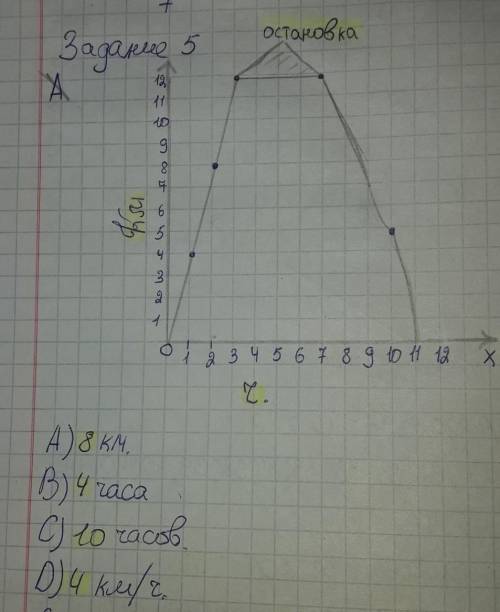 остановка
Задание 5
А
12
11
10
9
8
7
6
5
4
3
2
1
Км
0 1 2 3 4 5 6 7 8 9 10 11 12 х
ч.
А) 8 км.
В) 4 часа
С) 10 часов.
D) 4 км/ч.